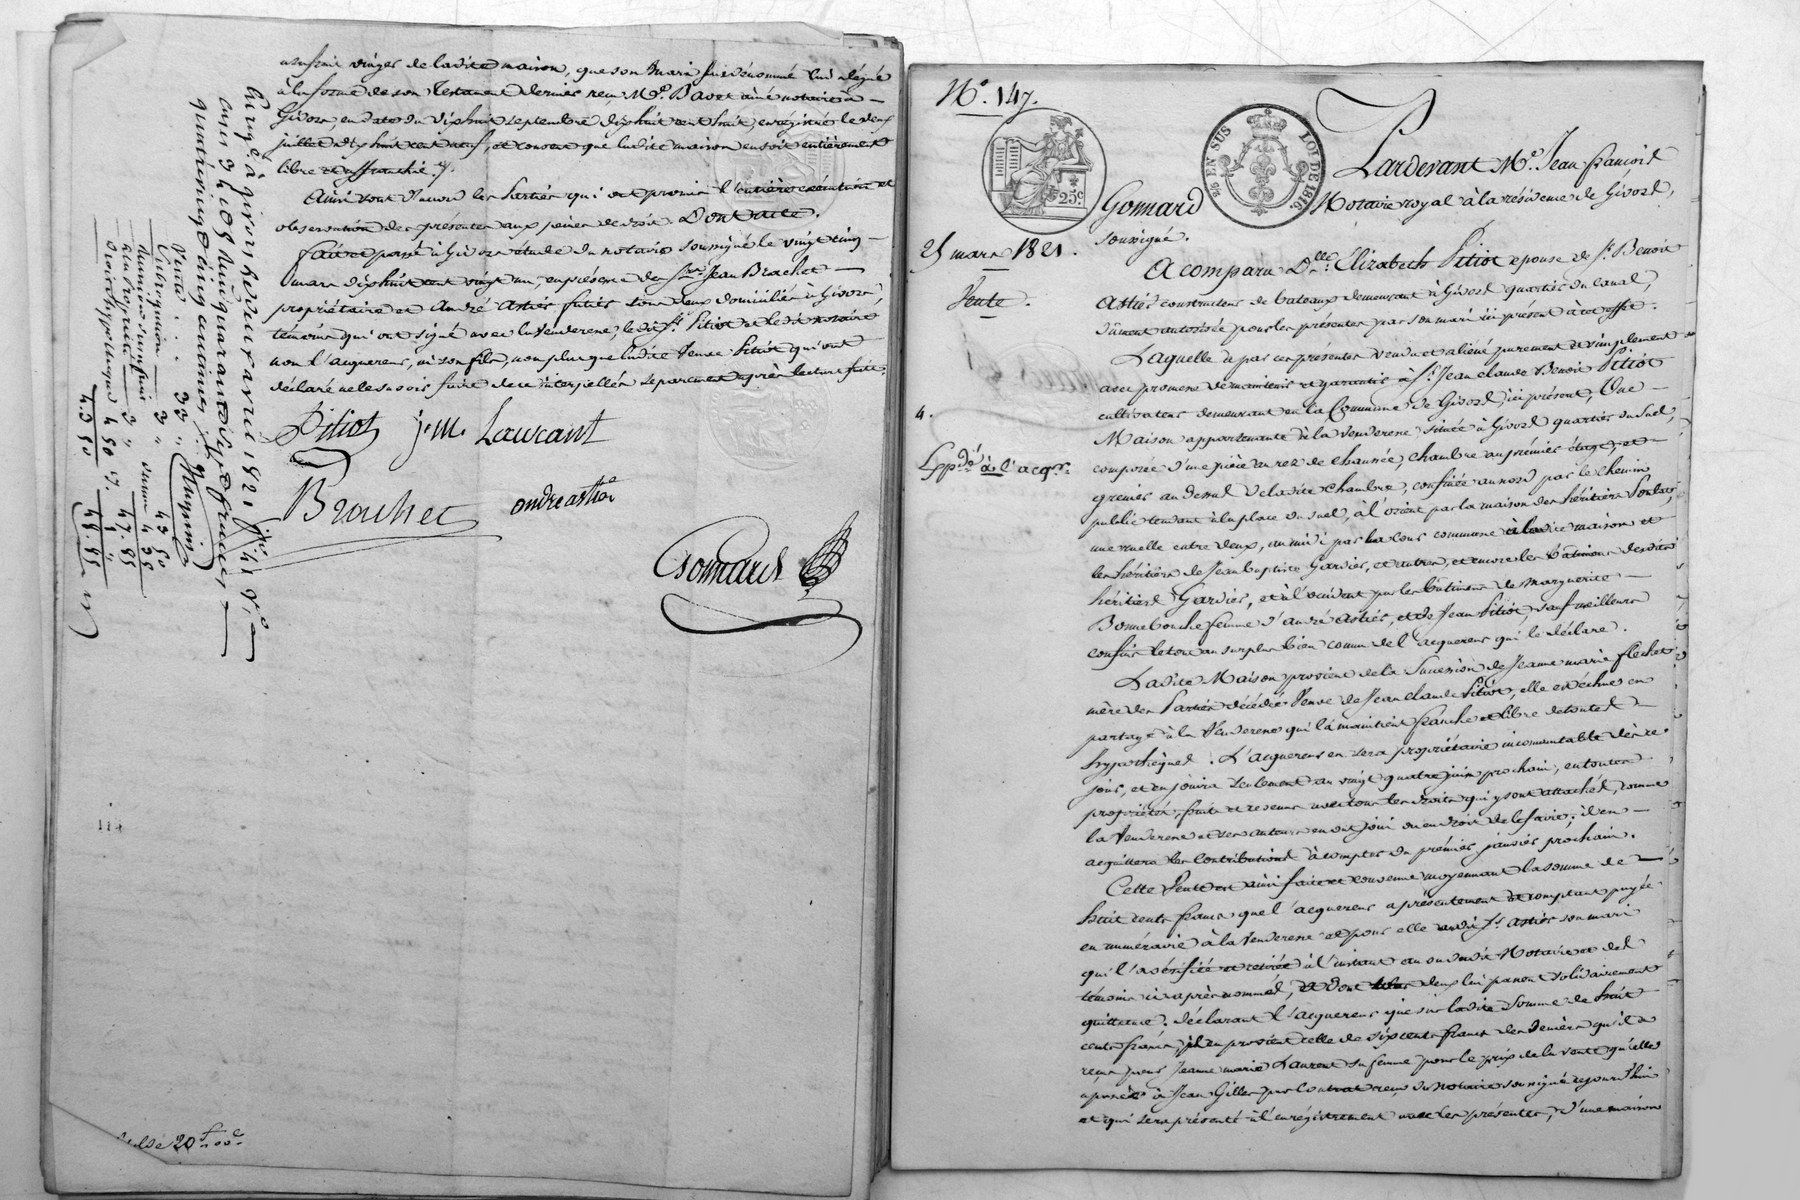 usufruit viager de ladite maison, que son mari susdénommé lui a légué
à la forme de son Testament dernier reçu Me. Bavet ainé notaire à
Givors, en date du dix huit septembre dix huit cent huit, enregistré le deux
juillet dix huit cent neuf, et consent que ladite maison en soit entièrement
libre et affranchie.
Ainsi sont d'accord les Parties qui ont promis l'entière exécution et
observation des présentes aux peines de droit. Dont acte.
fait et passé à Givors étude du notaire soussigné le vingt cinq
mars dix huit cent vingt un, en présence des Srs. Jean Brachet
propriétaire et André Astier fustier tous deux domiciliés à Givors,
témoins qui ont signé avec la Venderesse, le dit Sr. Pitiot et le dit notaire
non l'acquereur, ni son fils, non plus que ladite Veuve Pitiot qui ont
déclaré ne le savoir faire de ce interpellés séparément après lecture faite.
Pitiot J. M. Laurant
Brachet andre astier
Gonnard
Enregé. à Givors le deux avril 1821 fo. 41 Ro.
cases 3 4 et 5 Reçu quarante sept francs
quatre vingt cinq centimes
Vente . . . 33 "
Subrogation 3 "
Réunion d'usufruit 3 "
Droit hypothèque 4 50
43 50
43 50
4 35
47. 85
1 "
48. 85
114
soldé 20 f. 00 c.
No. 147.
25 mars 1821.
Vente.
4.
Exppé. à l'acqr.
25c
25 EN SUS
LOI DE 1816
Pardevant Me. Jean François
Gonnard Notaire royal à la résidence de Givors,
soussigné.
A comparu Dlle. Elizabeth Pitiot epouse de Sr. Benoit
Astier constructeur de bateaux demeurant à Givors quartier du Canal,
dûment autorisée pour les présentes par son mari ici présent à cet effet.
Laquelle de par ces présentes a vendu et aliéné purement et simplement
avec promesse de maintenir et garantir à Sr. Jean Claude Benoit Pitiot
cultivateur demeurant en la Commune de Givors, ici présent, Une
Maison appartenante à la venderesse, située à Givors quartier du Suel,
composée d'une pièce au rez de chaussée, chambre au premier étage, et
grenier au dessus de ladite chambre, confinée au nord par le chemin
public tendant à la place du Suel, à l'orient par la maison des héritiers
une ruelle entre deux, au midi par la cour commune à ladite maison et
les héritiers de Jean Baptiste Gardier, et autres, et encore les bâtimens desdits
héritiers Gardier, et à l'occident par les bâtimens de Marguerite
Bonnebouche femme d'andré Astier, et de Jean Pitiot, sauf meilleurs
confins le tout au surplus bien connu de l'acquereur qui le déclare.
Ladite Maison provient de la Succession de Jeanne marie flechet
mère des Parties décédée Veuve de Jean claude Pitiot, elle est échue en
partage à la Venderesse qui la maintient franche et libre de toutes
hypothèques. L'acquereur en sera propriétaire incommutable dès ce
jour, et en jouira seulement au vingt quatre juin prochain, en toute
propriété, fruits et revenus avec tous les droits qui y sont attachés, comme
la Venderesse et ses auteurs en ont joui ou eu droit de le faire; il en
acquittera les Contributions à compter du premier janvier prochain.
Cette Vente est ainsi faite et convenue moyennant la somme de
huit cents francs que l'acquereur a présentement et comptant payée
en numéraire à la Venderesse et pour elle audit Sr. Astier son mari
qui l'a vérifiée et retirée à l'instant au vu dudit Notaire et des
témoins ci après nommés, et dont tous deux lui passent solidairement
quittance. déclarant l'acquereur que sur ladite Somme de huit
cents francs, il en provient celle de six cents francs des deniers qu'il a
reçu pour Jeanne marie Laurent sa femme pour le prix de la vente qu'elle
a passée à Jean Giller par Contrat reçu du Notaire soussigné cejourd'hui
et qui sera présenté à l'enregistrement avec les présentes, d'une maison